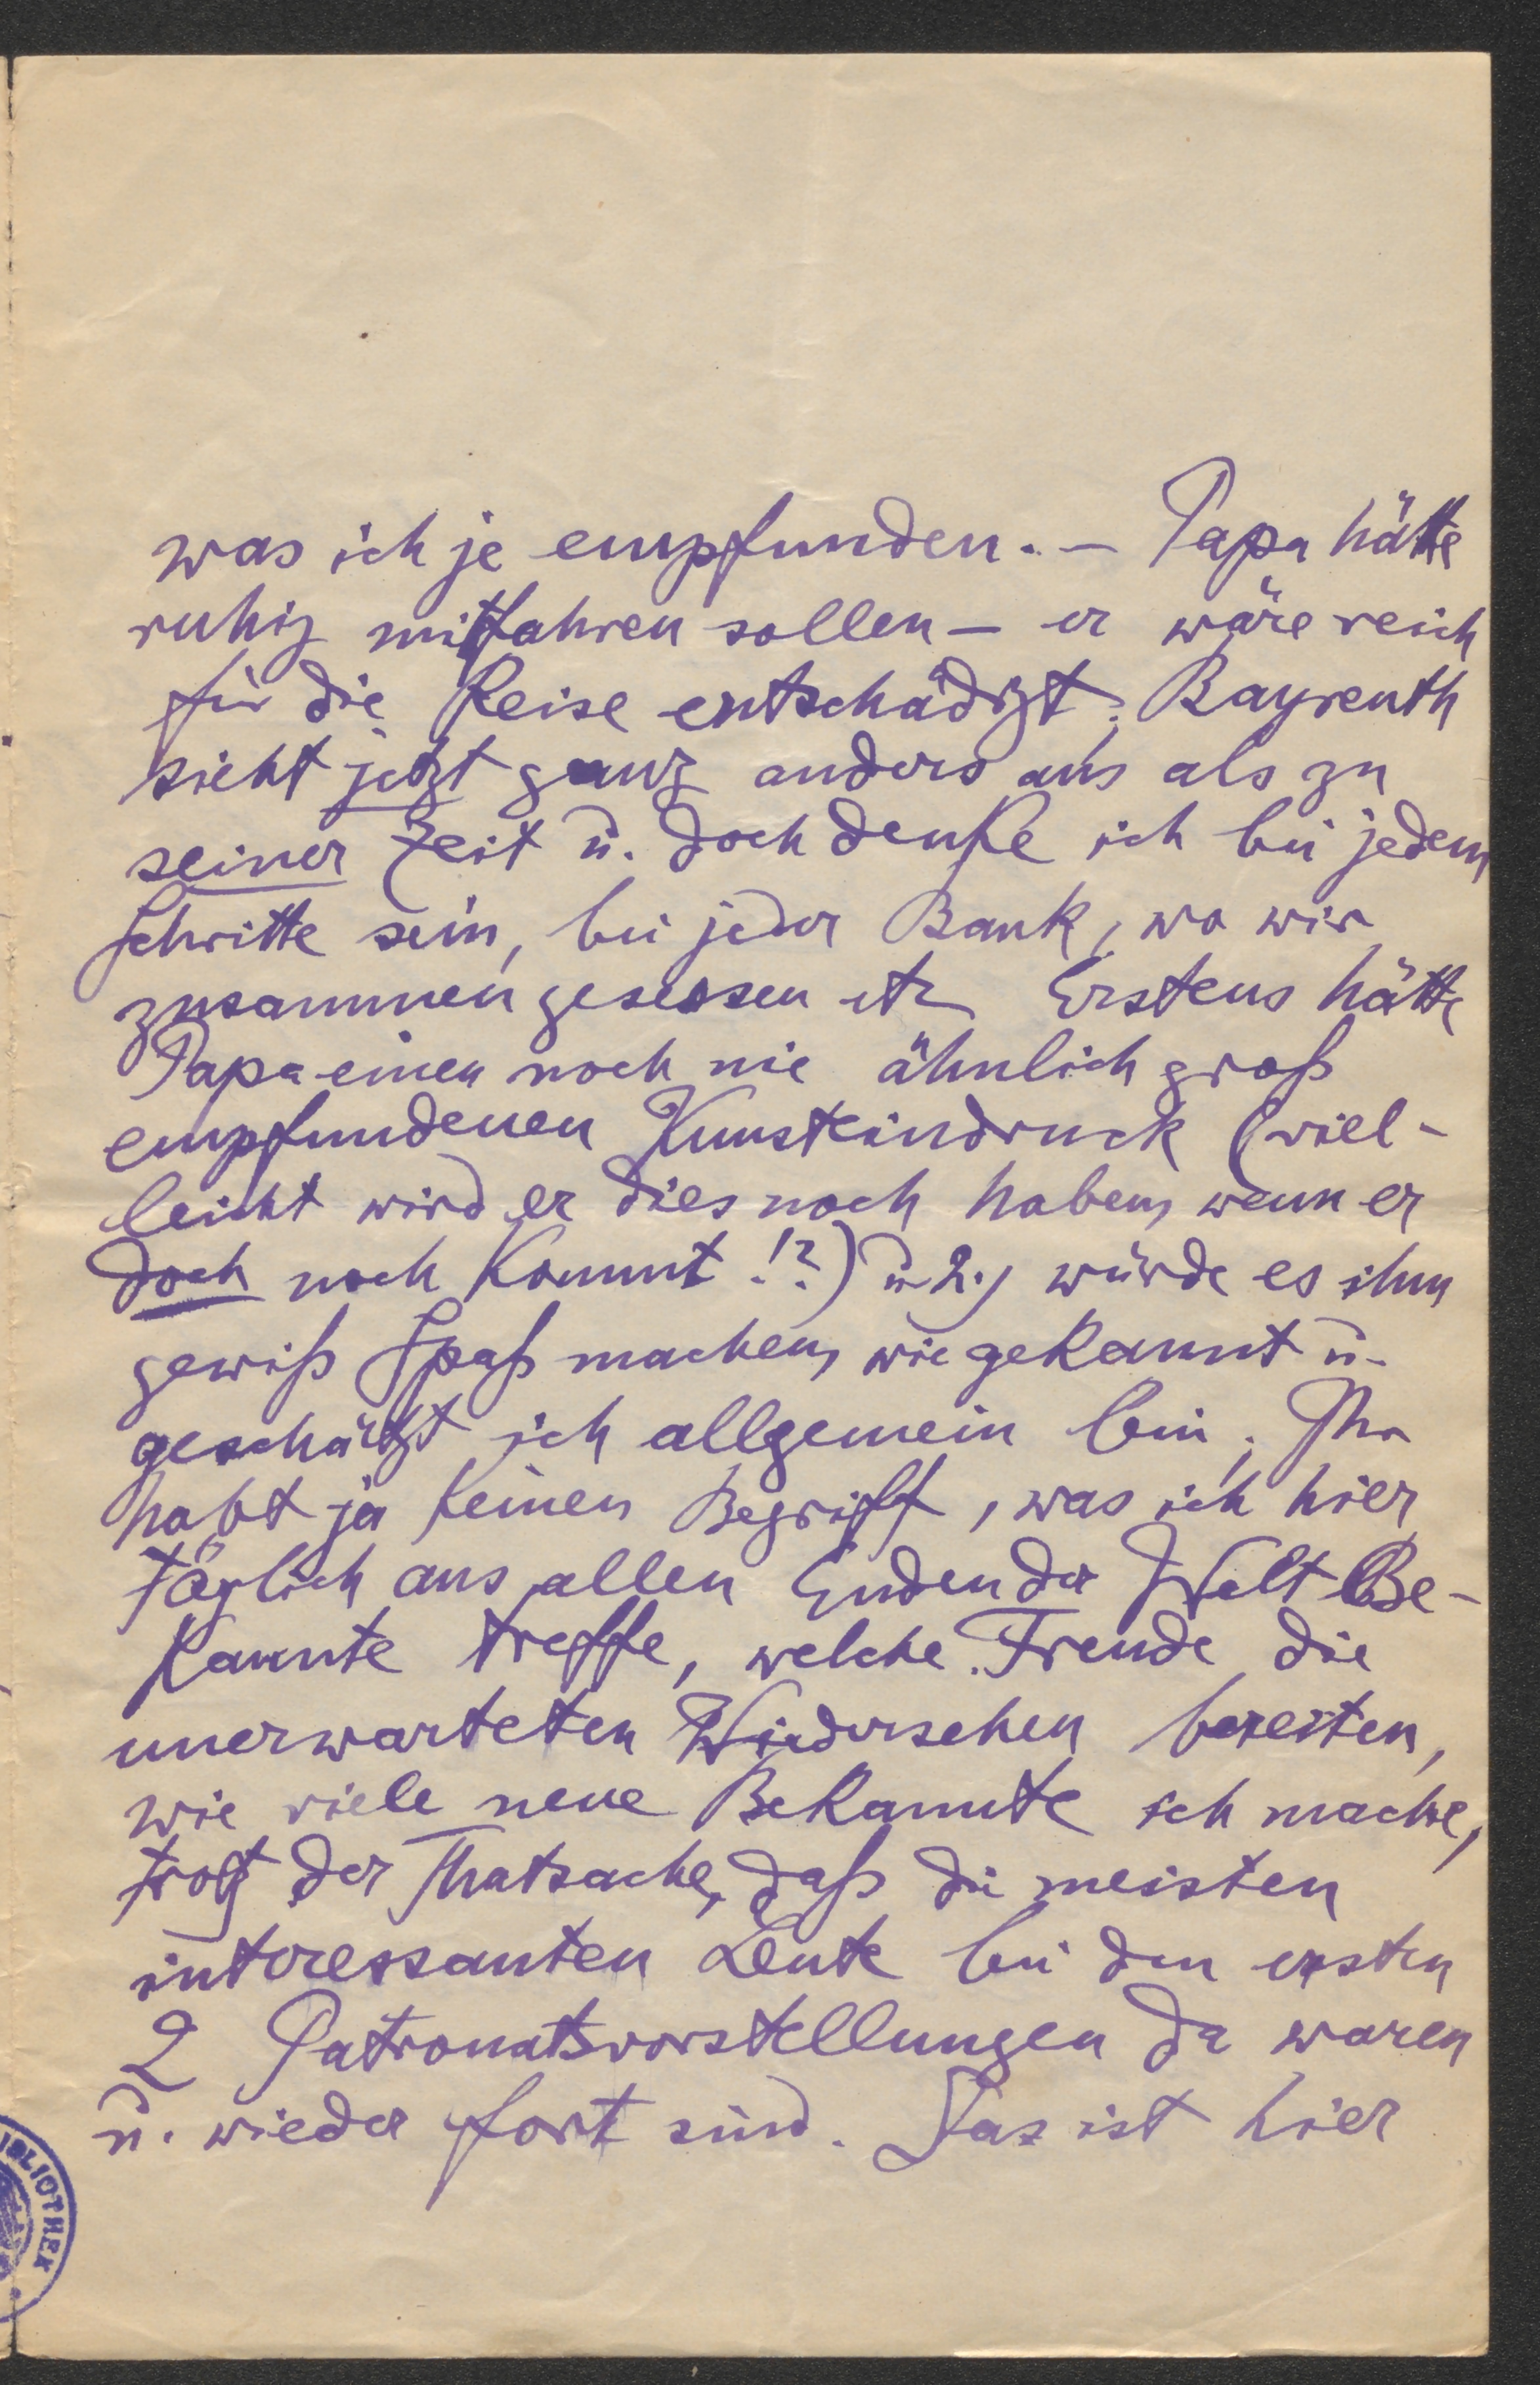 was ich je empfunden. – Papa hätte
ruhig mitfahren sollen – er wäre reich
für die Reise entschädigt. Bayreuth
sieht jetzt ganz anders aus als zu
seiner Zeit u. doch denke ich bei jedem
Schritte sein, bei jeder Bank, wo wir
zusammen gesessen etc Erstens hätte
Papa einen noch nie ähnlich groß
empfundenen Kunsteindruck (viel-
leicht wird er dies noch haben, wenn er
doch noch kommt!?) u 2.) würde es ihm
gewiß Spaß machen, wie gekannt u.
geschätzt ich allgemein bin. Ihr
habt ja keinen Begriff, was ich hier
täglich aus allen Enden der Welt Be-
kannte treffe, welche Freude die
unerwarteten Wiedersehen bereiten,
wie viele neue Bekannte ich mache,
trotz der Thatsache, daß die meisten
interessanten Leute bei den ersten
2 Patronatsvorstellungen da waren
u. wieder fort sind. Das ist hier
IBLIOTHEK